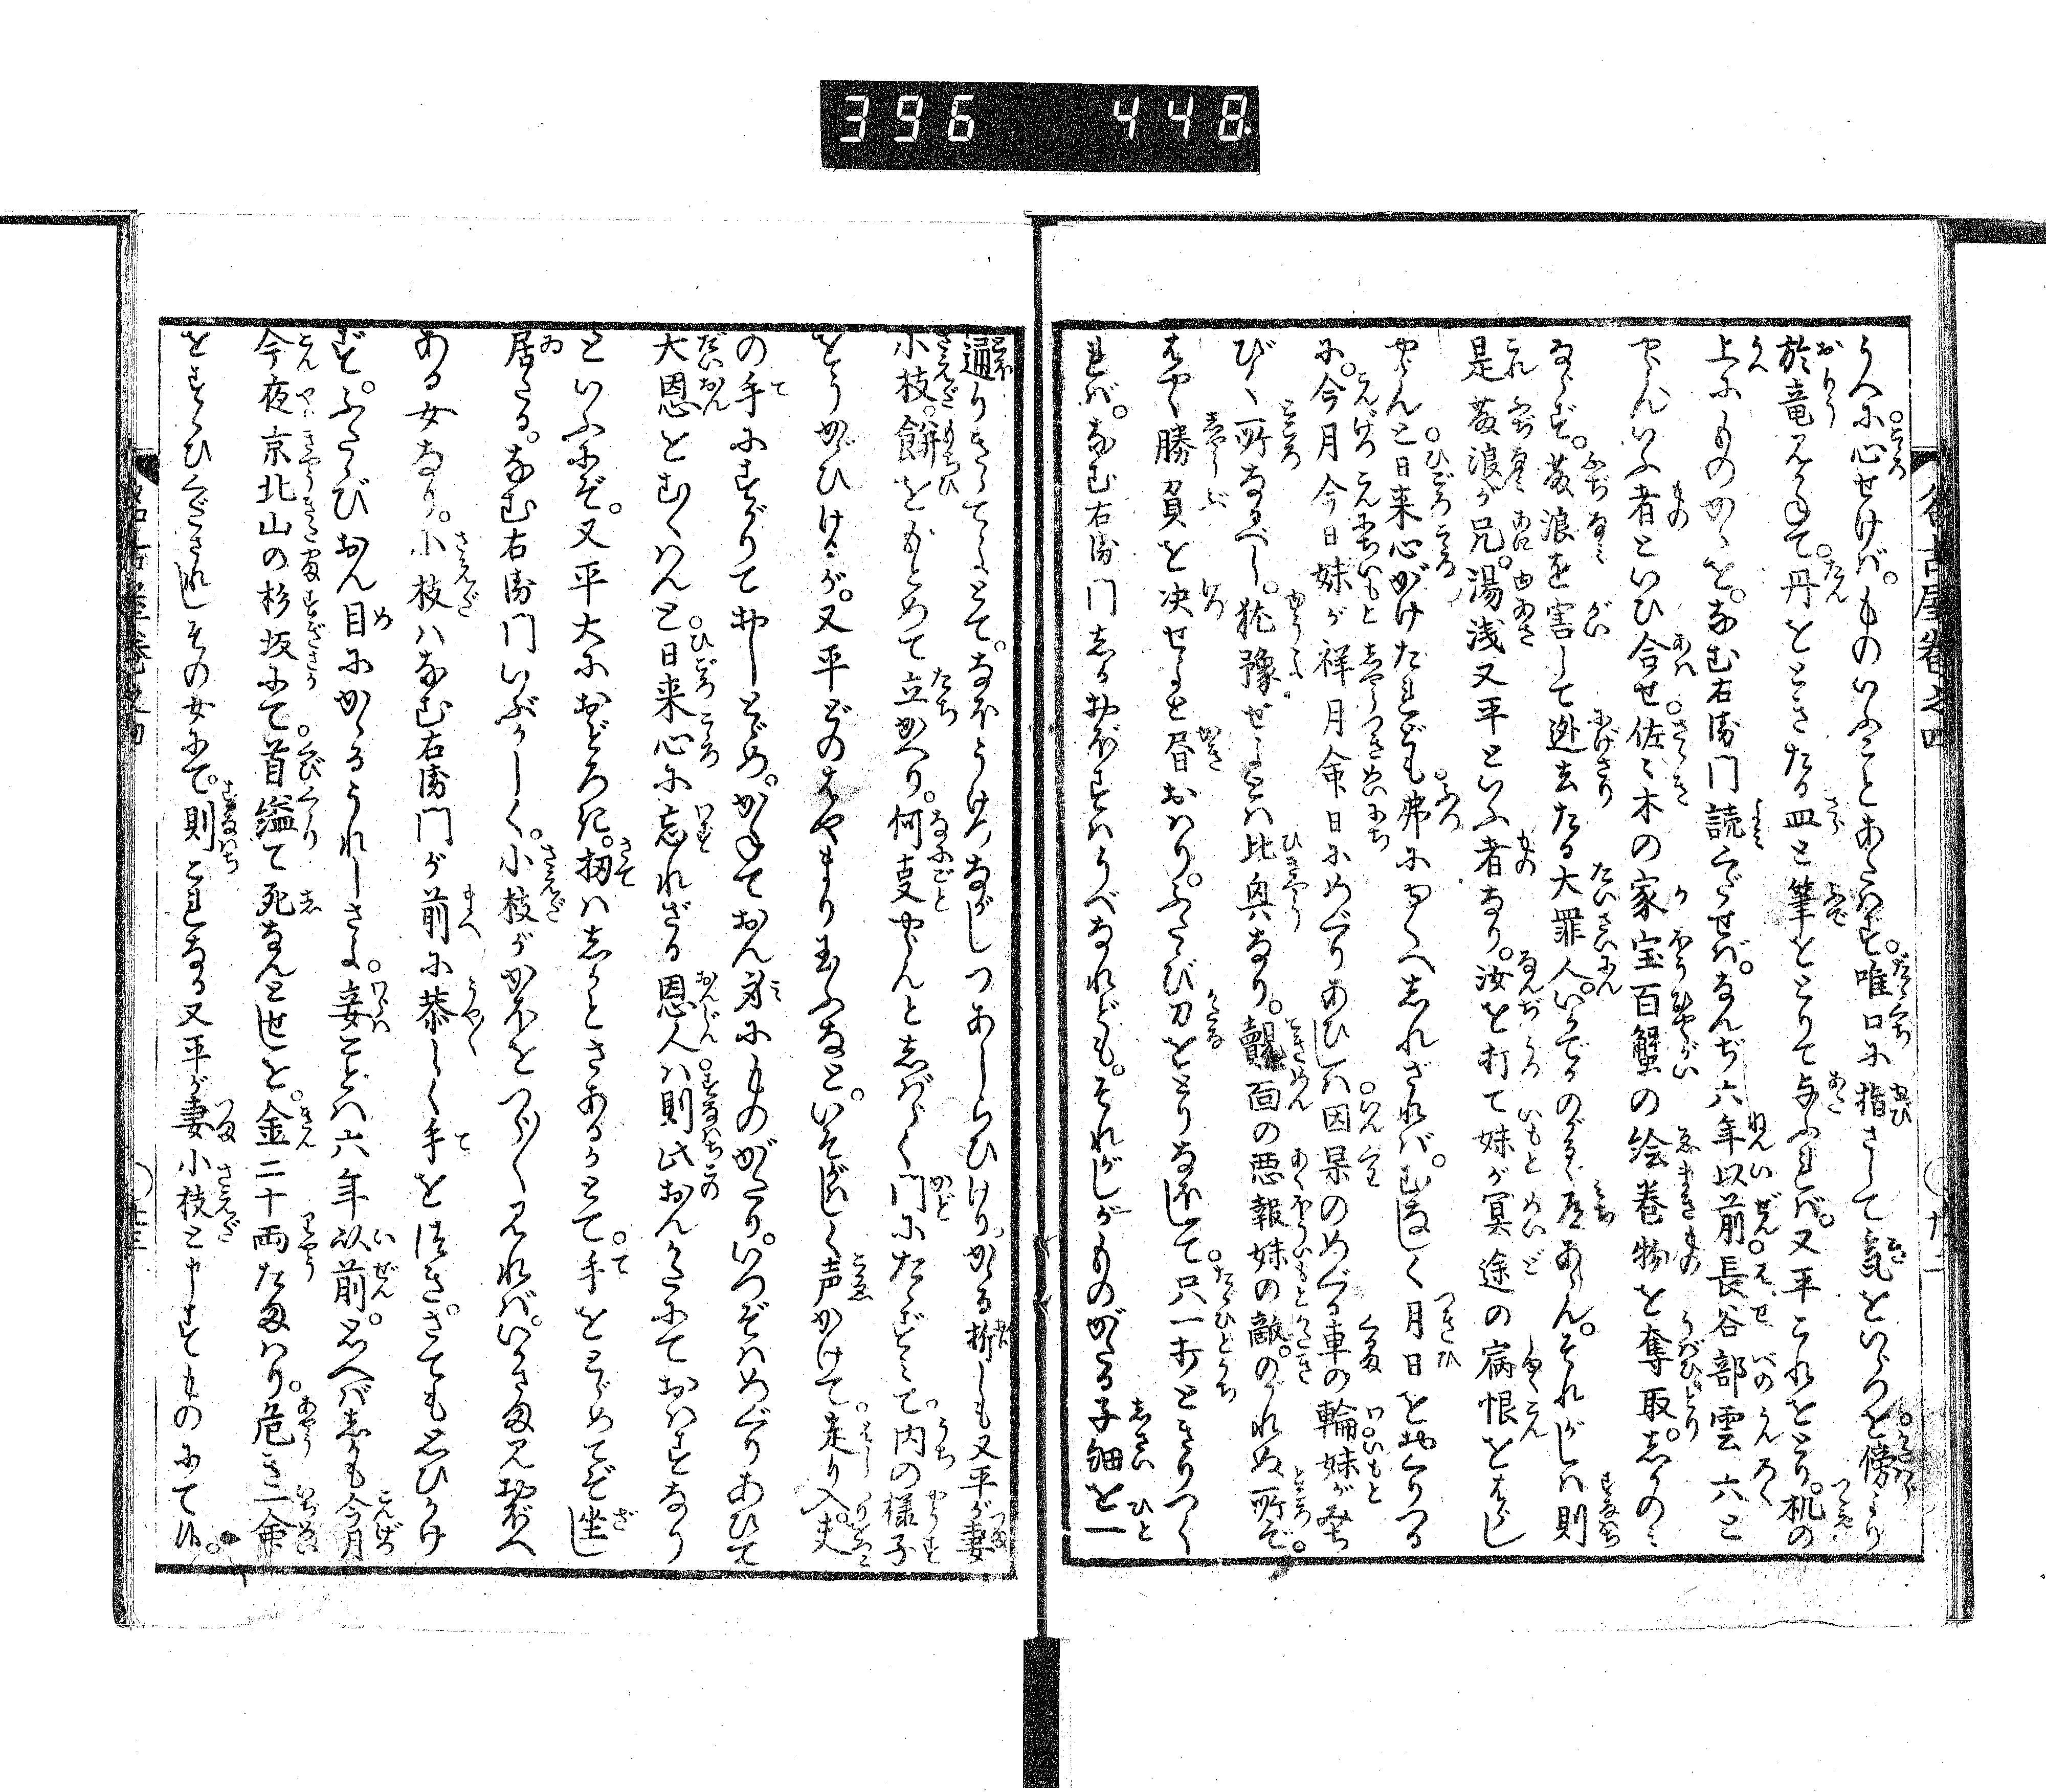 396 448
うへに心せけバ。ものいふことあたハず。唯口に指さして気をいらつを傍より
於竜見かねて。丹をときたる皿と筆をとりて与ふれバ。又平これをとり。机の
上にものかくを。なむ右衛門読くだせバ。なんぢ六年以前長谷部雲六と
やらんいふ者といひ合せ。佐々木の家宝百蟹の絵巻物を奪取。しかのミ
ならず。藤浪を害して逃去たる大罪人。いかでかのがるゝ道あらん。それがしハ則
是藤浪が兄。湯浅又平といふ者なり。汝を打て妹が冥途の病恨をはらし
やらんと日来心がけたれども。弗にゆくへしれざれバ。むなしく月日をおくりつる
に。今月今日妹が祥月命日にめぐりあひしハ因果のめぐる車の輪妹がみち
びく所なるべし。猶豫せるハ比興なり。覿面の悪報妹の敵。のがれぬ所ぞ。
はやく勝負を决せよと書おハり。ふたゝび刀をとりなほして。只一打ときりつく
れバ。なむ右衛門しる.おぼすハうべなれども。それがしがものがたる子細を一
通りきゝてよとて。なほうけながしつあしらひけり。かゝる折しも又平が妻
小枝。餅をもとめて立かへり。何事やらんとしばらく門にたゝずミて。内の様子
をうかゞひけるが。又平どのはやまり玉ふなと。いそがハしく声かけて。走り入。丈
の手にすがりておしとゞめ。かねておん身にものがたり。いつぞハめぐりあひて
大恩をむくハんと日来心に忘れざる恩人ハ則此おんかたにておハすなり
といふにぞ。又平大におどろき。扨ハしかとさあるかとて。手をとゞめてぞ坐し
居たる。なむ右衛門いぶかしく。小枝がかほをつら〳〵見れバ。いささか見おぼへ
ある女なり。小枝ハなむ右衛門が前に恭しく手をつき。さても思ひかけ
ず。ふたゝびおん目にかゝるうれしさよ。妾ことハ六年以前。思へバしかも今月
今夜京北山の杉坂にて。首縊て死なんとせしを。金二十両たまハり。危き一命
をすくひくだされしその女にて。則これなる又平が妻小枝と申すものにて候。